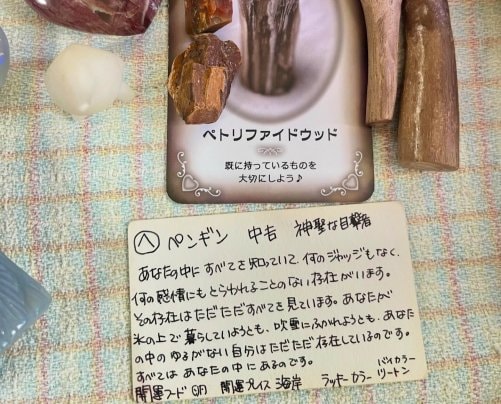 ペトリファイドウッド
既に持っているものを
大切にしよう♪
㋬ ペンギン 中吉 神聖な目撃者
あなたの中にすべてを知っていて、何のジャッジもなく、
何の感情にもとらわれることのない存在がいます。
その存在はただただすべてを見ています。あなたが
氷の上で暮らしていようとも、吹雪にふかれようとも、あなた
の中のゆるがない自分はただただ存在しているのです。
すべてはあなたの中にあるのです。
開運フード 卵 開運プレイス 海岸 ラッキーカラー バイカラー
ツートン